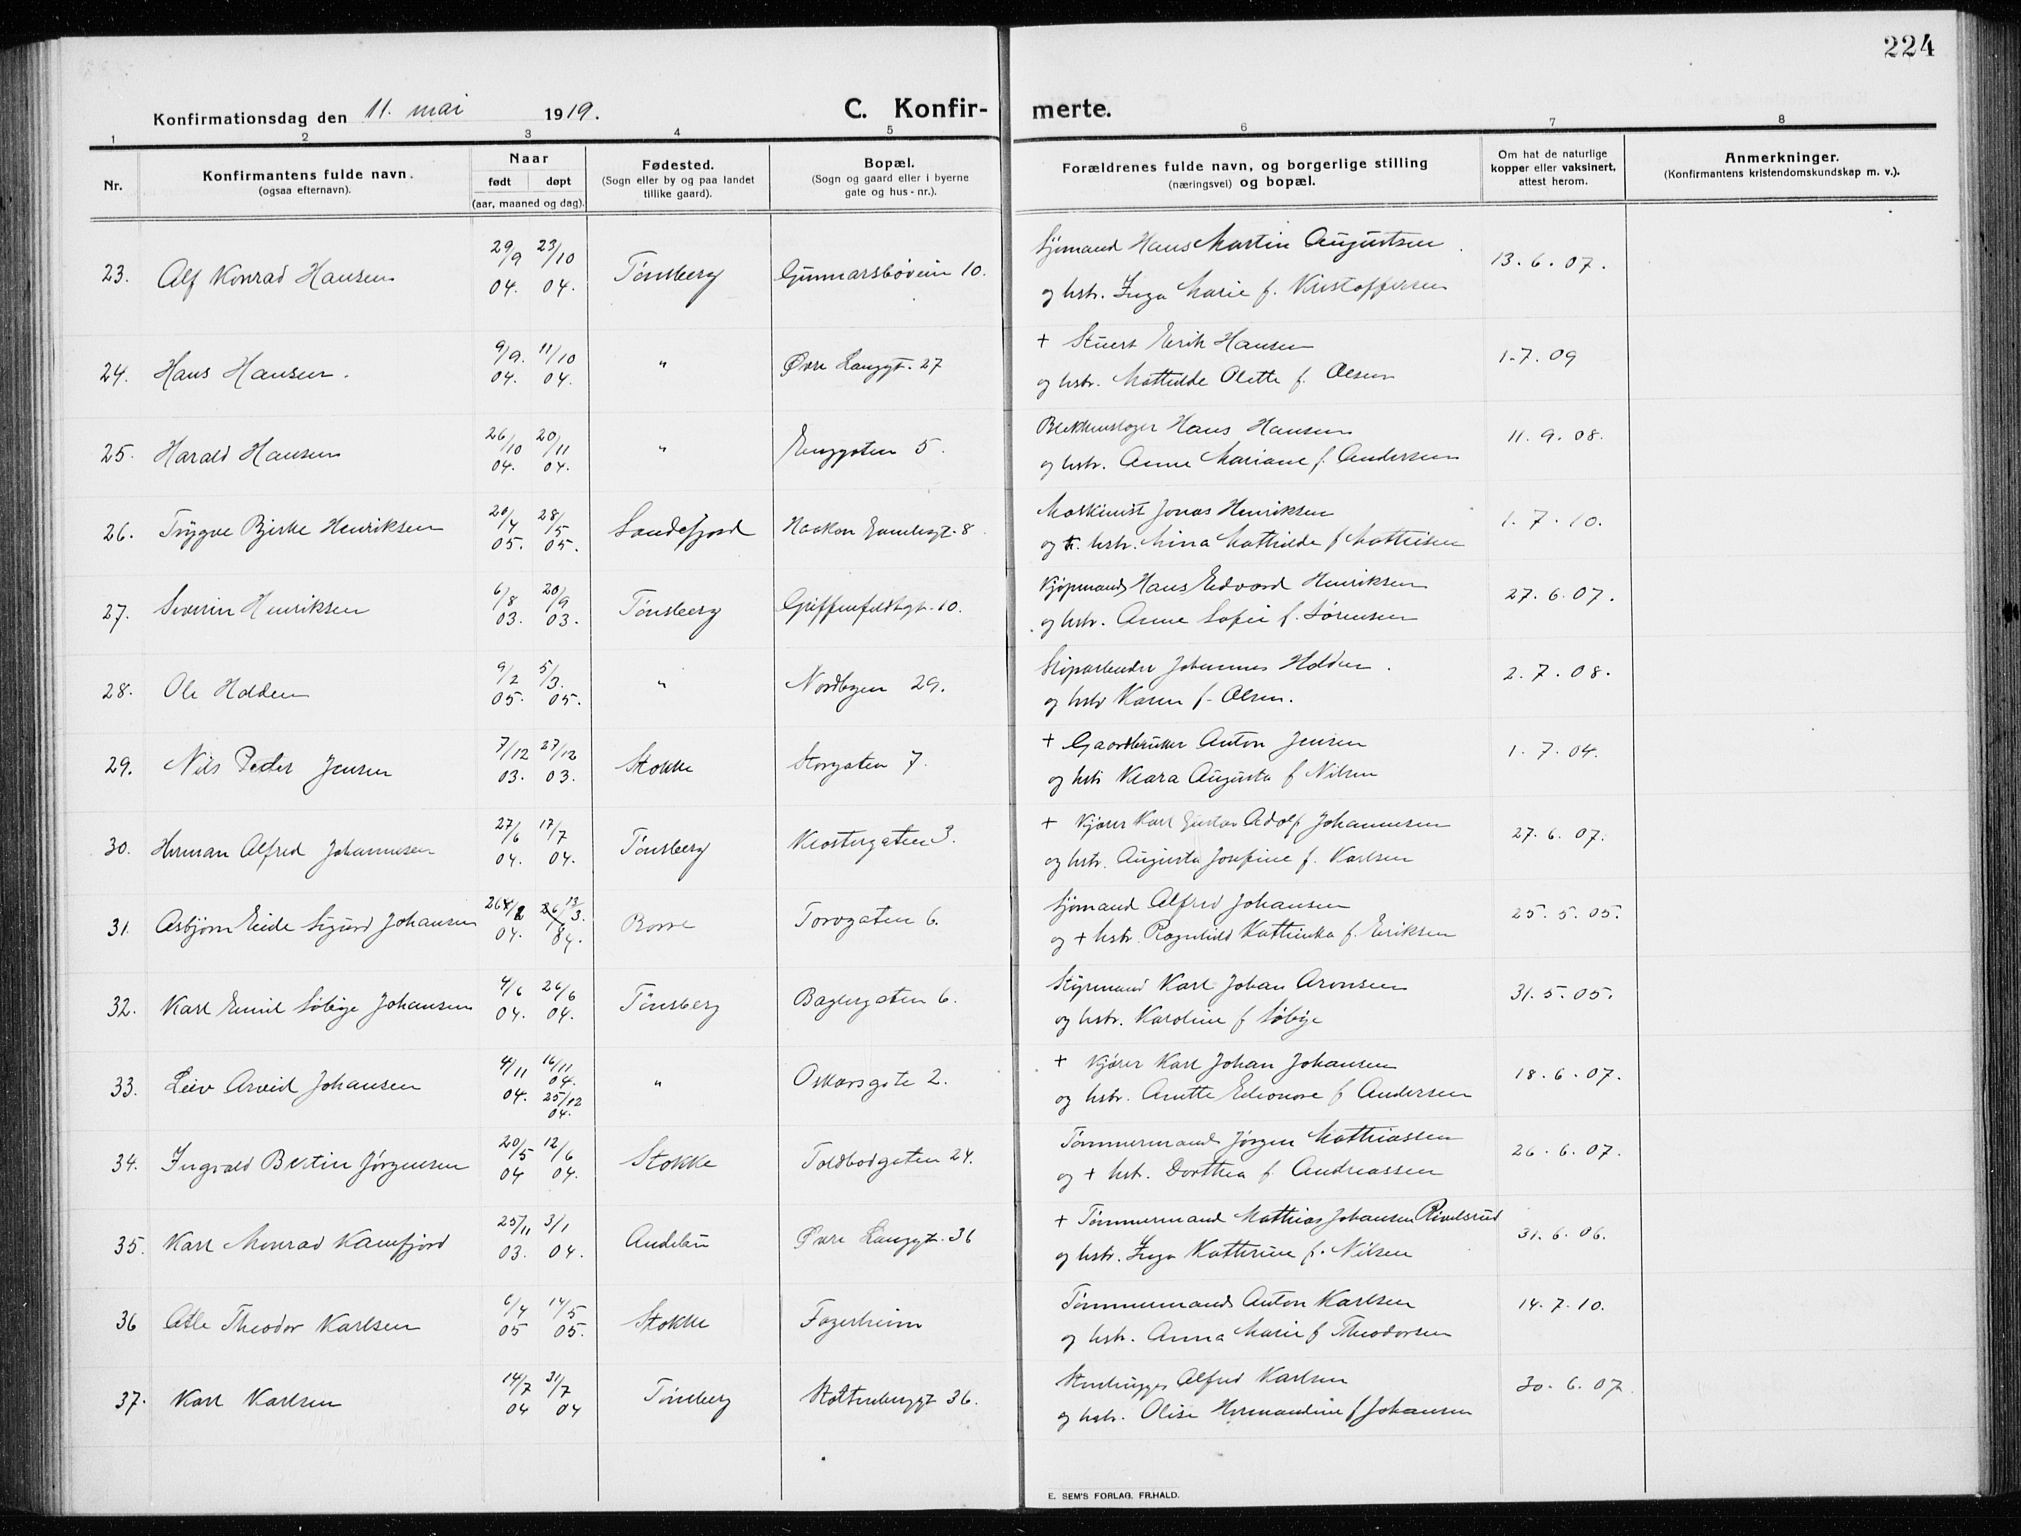 224
Konfirmationsdag den 11. mai 1919. C. Konfir- merte.
1 2 3 4 5 6 7 8
Nr. Konfirmantens fulde navn. (ogsaa efternavn). Naar født døpt (aar, maaned og dag). Fødested. (Sogn eller by og paa landet tillike gaard). Bopæl. (Sogn og gaard eller i byerne gate og hus-nr.). Forældrenes fulde navn, og borgerlige stilling (næringsvei) og bopæl. Om hat de naturlige kopper eller vaksinert, attest herom. Anmerkninger. (Konfirmantens kristendomskundskap m. v.).
23. Alf Konrad Hansen 29/9 04. 23/10 04. Tønsberg Gunnarsbøveien 10. Sjømand Hans Martin Augustsen 13.6.07.
og hstr. Inga Marie f. Kristoffersen
24. Hans Hansen. 9/9. 04. 11/10 04. " Øvre Langgt. 27 + Stuert Erik Hansen 1.7.09
og hstr. Mathilde Olette f. Olsen
25. Harald Hansen 26/10 04. 20/11 04. " Enggaten 5. Blikkenslager Hans Hansen 11.9.08.
og hstr. Anne Mariane f. Andersen
26. Trygve Bjerke Henriksen 20/4 05. 28/5 05. Sandefjord Haakon Gamlesgt. 8 Maskinist Jonas Henriksen 1.7.10.
og hstr. Mina Mathilde f Mathisen
27. Severin Henriksen 6/8 03. 20/9 03. Tønsberg Griffenfeldtsgt. 10. Kjøpmand Hans Edvard Henriksen 27.6.07.
og hstr. Anne Sofie f. Sørensen
28. Ole Holden 9/2 05. 5/3. 05. " Nordbyen 29. Skiparbeider Johannes Holden. 2.7.08.
og hstr Karen f. Olsen.
29. Nils Peder Jensen 7/12 03. 27/12 03. Stokke Storgaten 7. + Gaardbruker Anton Jensen 1.7.04.
og hstr Klara Augusta f Nilsen
30. Herman Alfred Johannesen 27/6 04. 17/7 04. Tønsberg Klostergaten 3. + Kjører Karl Gustav Adolf Johannesen 27.6.07.
og hstr. Augusta Josefine f. Karlsen
31. Asbjørn Eide Sigurd Johansen 26/2 04. 13/3. 04. Borre Torvgaten 6. Sjømand Alfred Johansen 25.5.05.
og + hstr. Ragnhild Kathinka f. Eriksen
32. Karl Emil Søbye Johansen 4/6 04. 26/6 04. Tønsberg Baglergaten 6. Styrmand Karl Johan Aronsen 31.5.05.
og hstr. Karoline f Søbye
33. Leiv Arvid Johansen 4/11 04. 16/11 04. 25/12 04. " Oskarsgate 2. + Kjører Karl Johan Johansen 18.6.07.
og hstr. Anette Eleonore f Andersen
34. Ingvald Bertin Jørgensen 20/5 04 12/6 04. Stokke Toldbodgaten 24. Tømmermand Jørgen Mathiassen 26.6.07.
og + hst. Dorthea f Andreassen
35. Karl Monrad Kamfjord 25/11 03. 3/1 04. Andebu Øvre Langgt. 36 + Tømmermand Mathias Johansen Rivelsrud 31.6.06.
og hstr. Inga Katherine f. Nilsen
36 Atle Theodor Karlsen 6/4 05 14/5 05. Stokke Fagerheim Tømmermand Anton Karlsen 14.7.10.
og hstr. Anna Marie f Theodorsen
37. Karl Karlsen 14/7 04 31/7 04 Tønsberg Stoltenberggt 36. Stenhugger Alfred Karlsen 30.6.07.
og hstr. Olise Hermandine f Johansen
E. SEM'S FORLAG. FR.HALD.